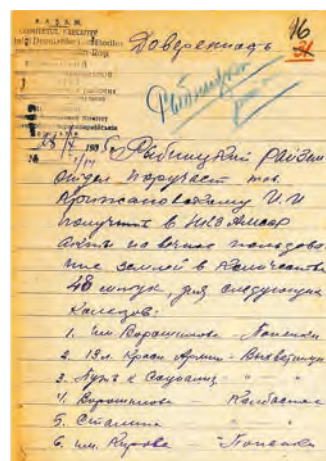 R. A. S. S. M.
COMITETUL EXECUTIV
16
Довереность
31
Рыбницкий
№
28/X 1935
Рыбницкий райзем
отдел поручает тов.
Крижановскому И.И
получить в НКЗ АМССР
акты на вечное пользова
ние землей в количестве
48 штук, для следующих
колхозов:
1. им Ворошилова - Попенки
2. 13 л. Красн Армии - Выхватинцы
3. Путь к Социализ " "
4. Ворошилова - Колбасна
5. Сталина "
6. им. Кирова - Попенки